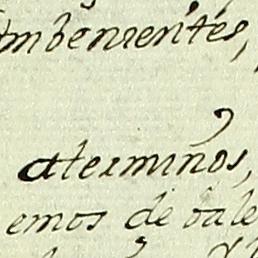 Imbenientes,
aterminos,
emos de vale